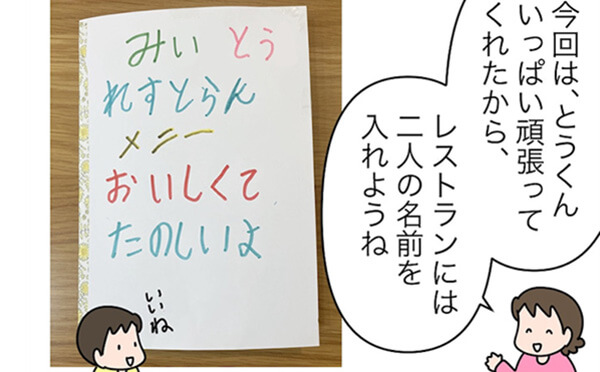 今回は、とうくん
いっぱい頑張って
くれたから、
レストランには
二人の名前を
入れようね
みい とう
れすとらん
メニー
おいしくて
たのしいよ
いいね